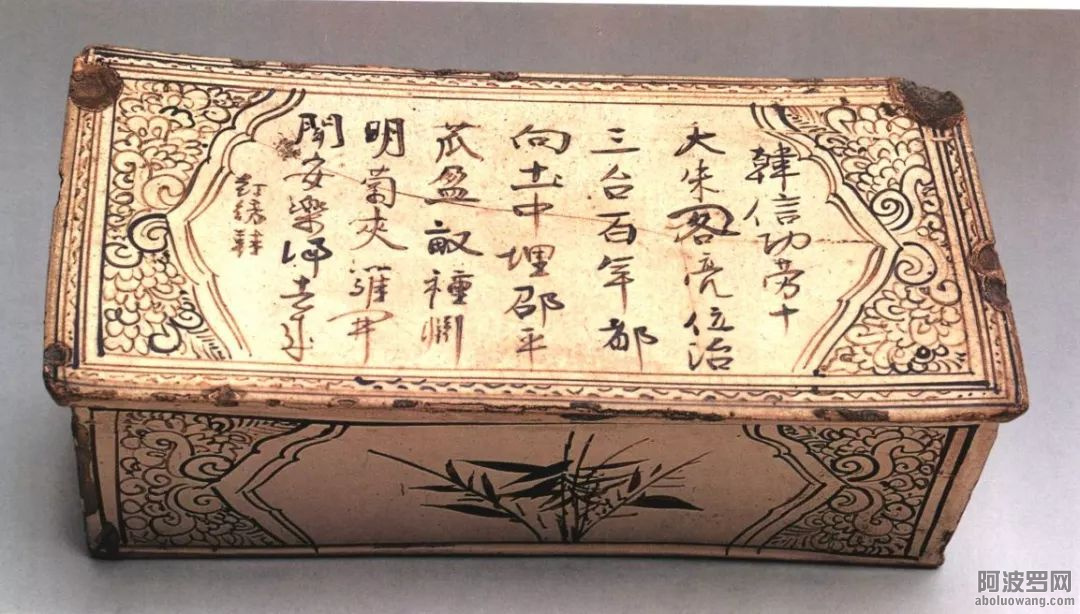 韓信功劳十
大朱阁亮位治
三台百年都
向土中埋邵平
苽盈畝種渊
明菊夾籬开
闻安樂归去来
阿波罗网
aboluowang.com